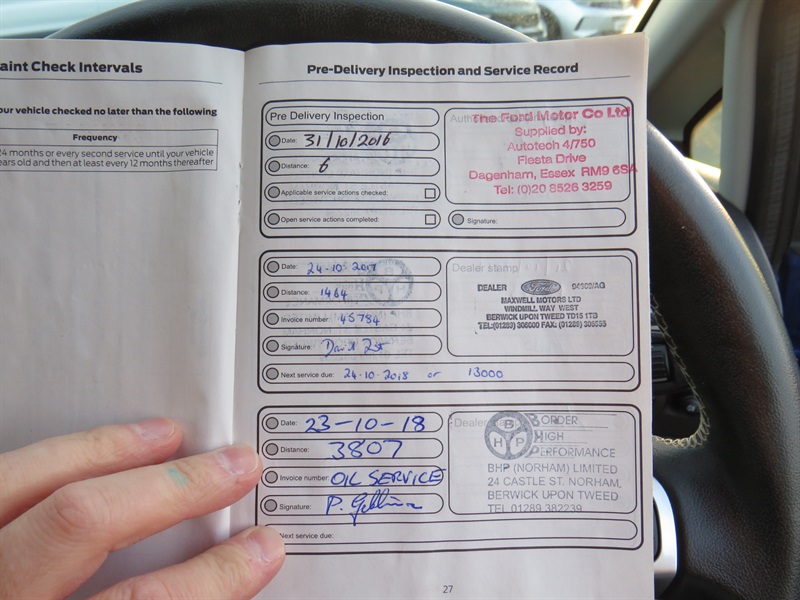 aint Check Intervals
our vehicle checked no later than the following
Frequency
24 months or every second service until your vehicle
ears old and then at least every 12 months thereafter
Pre-Delivery Inspection and Service Record
Pre Delivery Inspection
Date: 31/10/2016
Distance: 6
Applicable service actions checked:
Open service actions completed:
The Ford Motor Co Ltd
Supplied by:
Autotech 4/750
Fiesta Drive
Dagenham, Essex RM9 6SA
Tel: (0)20 8526 3259
Signature:
Date: 24·10·2017
Distance: 1464
Invoice number: 45784
Signature: David
Next service due: 24·10·2018 or 13000
Dealer stamp
DEALER Ford
MAXWELL MOTORS LTD
WINDMILL WAY WEST
BERWICK UPON TWEED TD15 1TB
TEL:(01289) FAX: (01289)
Date: 23-10-18
Distance: 3807
Invoice number: OIL SERVICE
Signature: P.
Next service due:
Dealer
BHP
BORDER
HIGH
PERFORMANCE
BHP (NORHAM) LIMITED
24 CASTLE ST. NORHAM,
BERWICK UPON TWEED
TEL 01289 382239
27